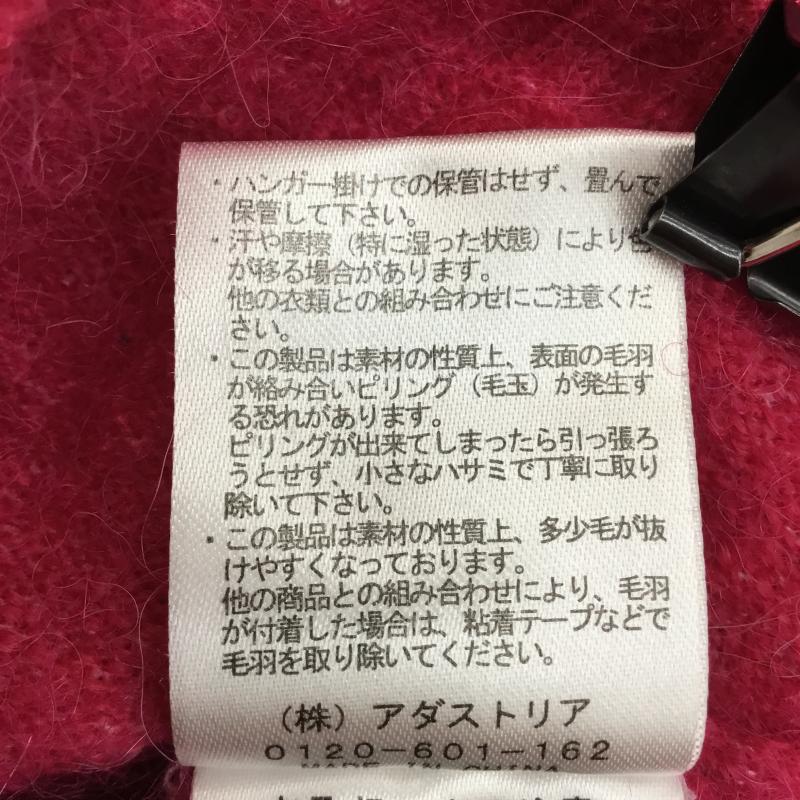 ・ハンガー掛けでの保管はせず、畳んで
保管して下さい。
・汗や摩擦（特に湿った状態）により色
が移る場合があります。
他の衣類との組み合わせにご注意くだ
さい。
・この製品は素材の性質上、表面の毛羽
が絡み合いピリング（毛玉）が発生す
る恐れがあります。
ピリングが出来てしまったら引っ張ろ
うとせず、小さなハサミで丁寧に取り
除いて下さい。
・この製品は素材の性質上、多少毛が抜
けやすくなっております。
他の商品との組み合わせにより、毛羽
が付着した場合は、粘着テープなどで
毛羽を取り除いてください。
（株）アダストリア
0120-601-162
MADE IN CHINA